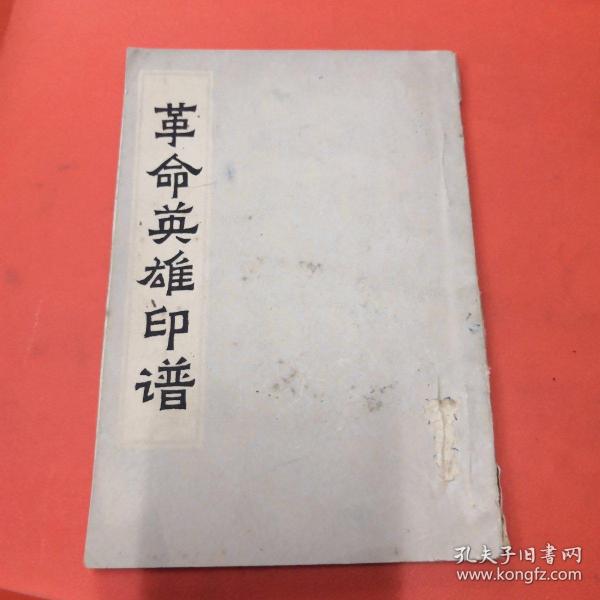 革命英雄印谱
孔夫子旧书网
www.kongfz.com